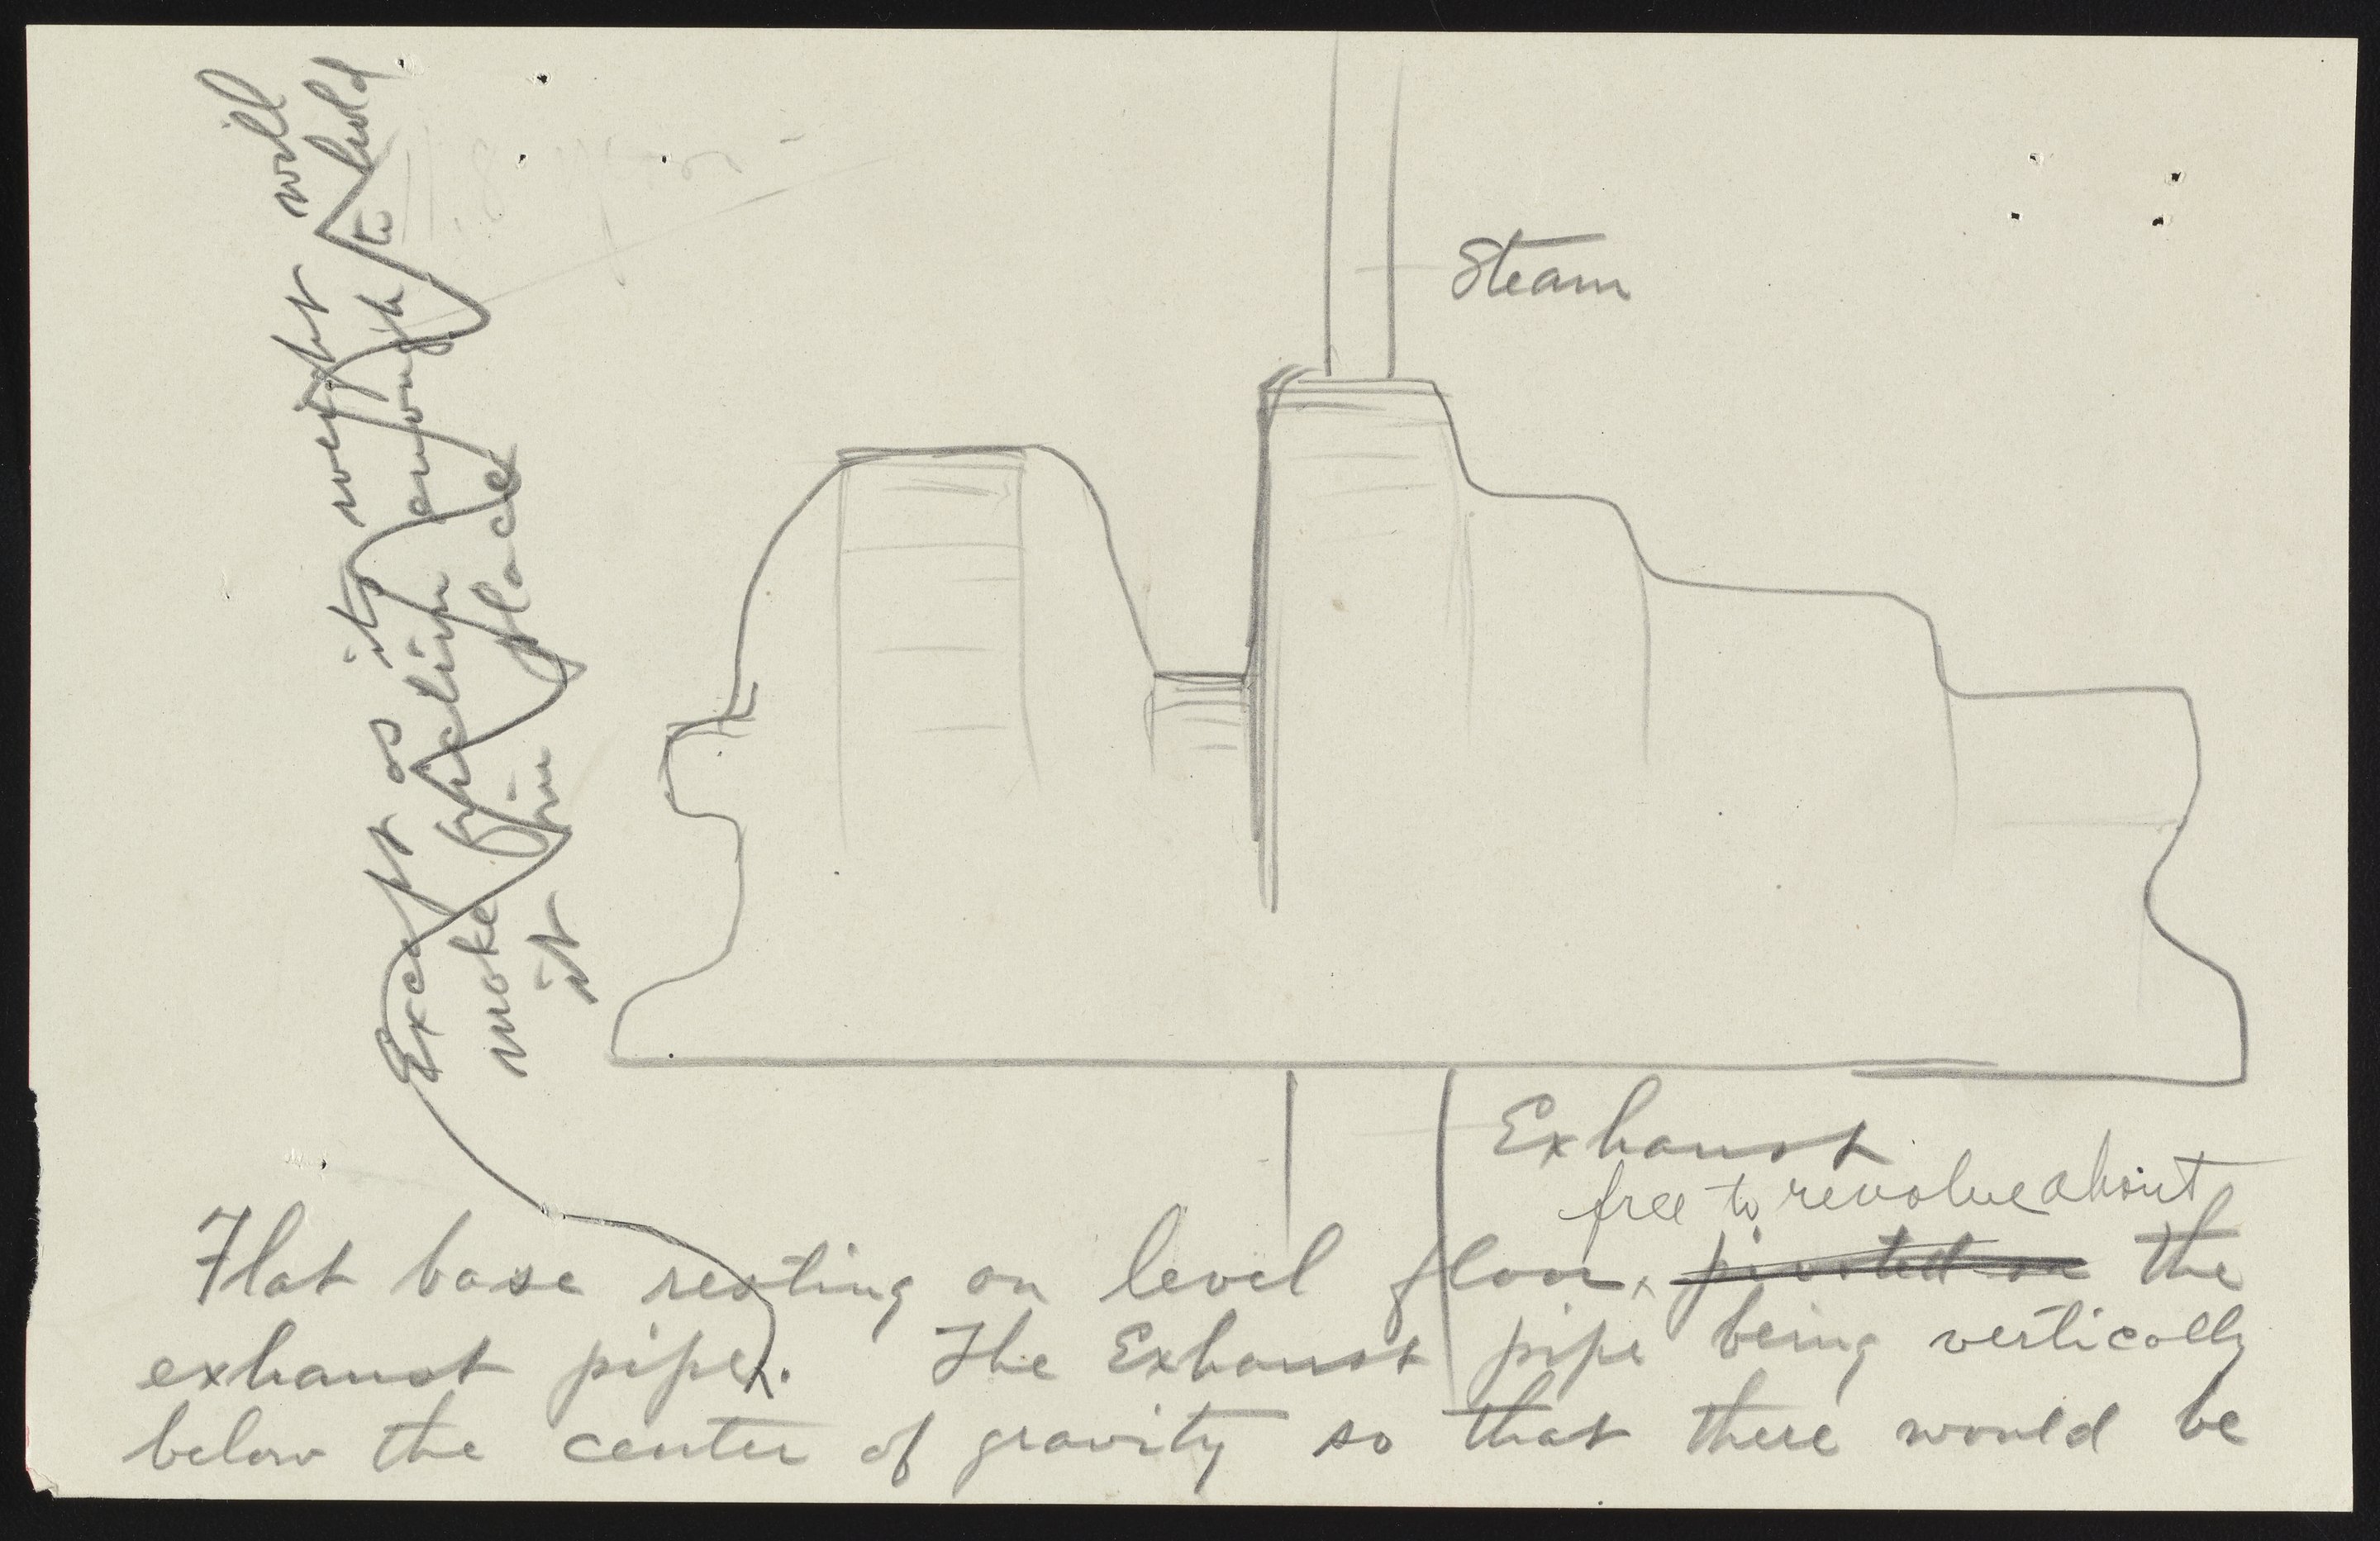 Steam
Exhaust
free to revolve about
Flat base resting on level floor, pivoted on the
exhaust pipe. The Exhaust pipe being vertically
below the center of gravity so that there would be
Except as its weight will
make friction enough to hold
it in place